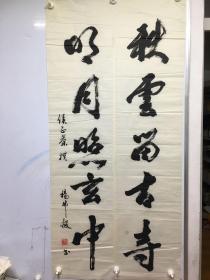 秋雲留古寺
明月照玄中